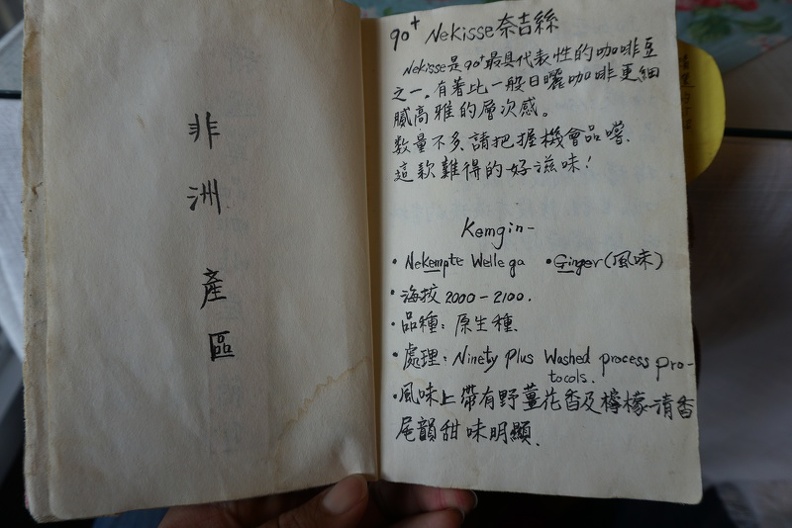 非洲產區
90+ Nekisse 奈吉絲
Nekisse是90+最具代表性的咖啡豆
之一,有著比一般日曬咖啡更細
膩高雅的層次感。
数量不多,請把握機會品嚐
這款難得的好滋味!
Kemgin-
•Nekempte Wellega •Ginger(風味)
•海拔2000-2100.
•品種:原生種.
•處理:Ninety Plus Washed process pro-
tocols.
•風味上帶有野薑花香及檸檬清香
尾韻甜味明顯.